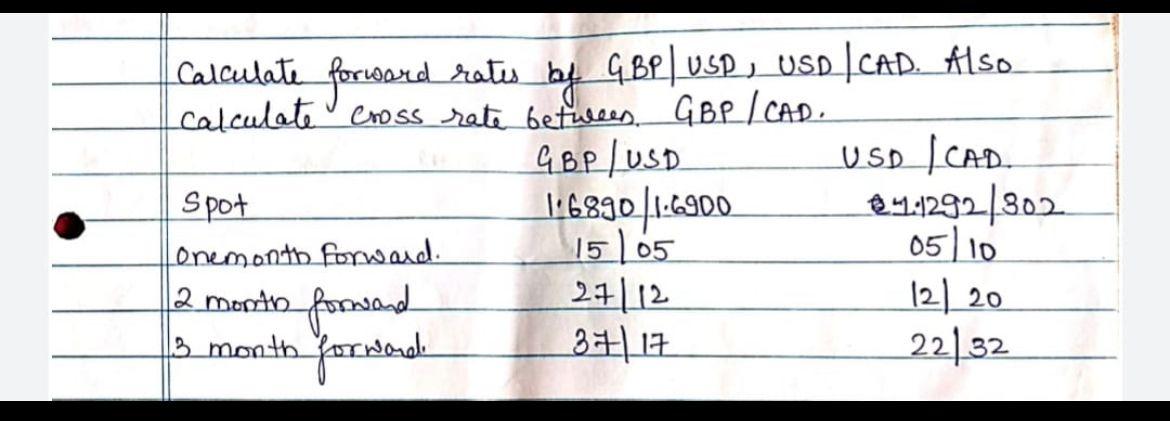 Calculate forward rates by GBP/USD, USD/CAD. Also
calculate cross rate between GBP/CAD.
GBP/USD USD/CAD.
Spot 1.6890/1.6900 1.1292/302
One month forward. 15/05 05/10
2 month forward 27/12 12/20
3 month forward. 37/17 22/32